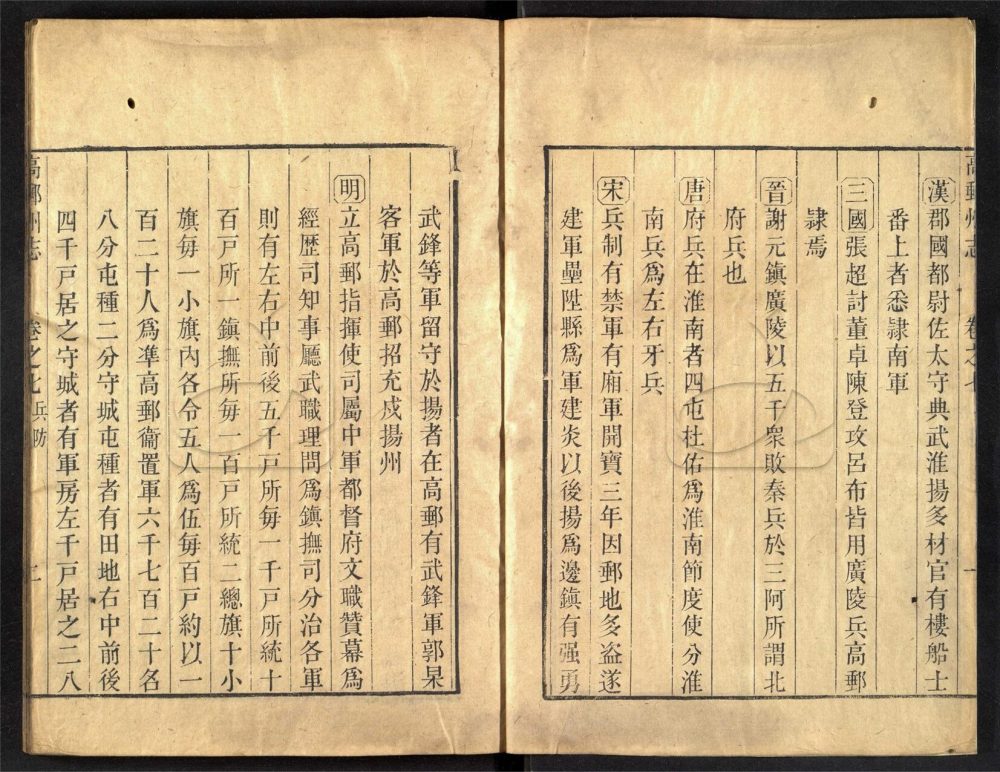 高郵州志 卷之七 一
漢郡國都尉佐太守典武淮揚多材官有樓船士
番上者悉隷南軍
三國張超討董卓陳登攻呂布皆用廣陵兵高郵
隷焉
晉謝元鎮廣陵以五千衆敗秦兵於三阿所謂北
府兵也
唐府兵在淮南者四屯杜佑爲淮南節度使分淮
南兵爲左右牙兵
宋兵制有禁軍有廂軍開寶三年因郵地多盗遂
建軍壘陞縣爲軍建炎以後揚爲邊鎮有强勇
武鋒等軍留守於揚者在高郵有武鋒軍郭杲
客軍於高郵招充戍揚州
明立高郵指揮使司屬中軍都督府文職贊幕爲
經歷司知事廳武職理問爲鎮撫司分治各軍
則有左右中前後五千戸所毎一千戸所統十
百戸所一鎮撫所毎一百戸所統二總旗十小
旗毎一小旗内各令五人爲伍毎百戸約以一
百二十人爲凖高郵衞置軍六千七百二十名
八分屯種二分守城屯種者有田地右中前後
四千戸居之守城者有軍房左千戸居之二八
高郵州志 卷之七 兵防 二